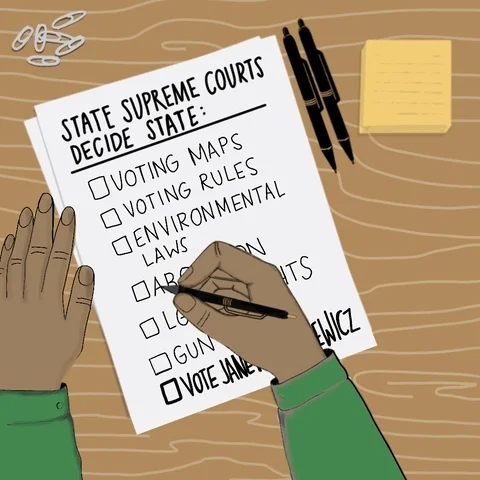 STATE SUPREME COURTS
DECIDE STATE:
VOTING MAPS
VOTING RULES
ENVIRONMENTAL
LAWS
GUN
VOTE